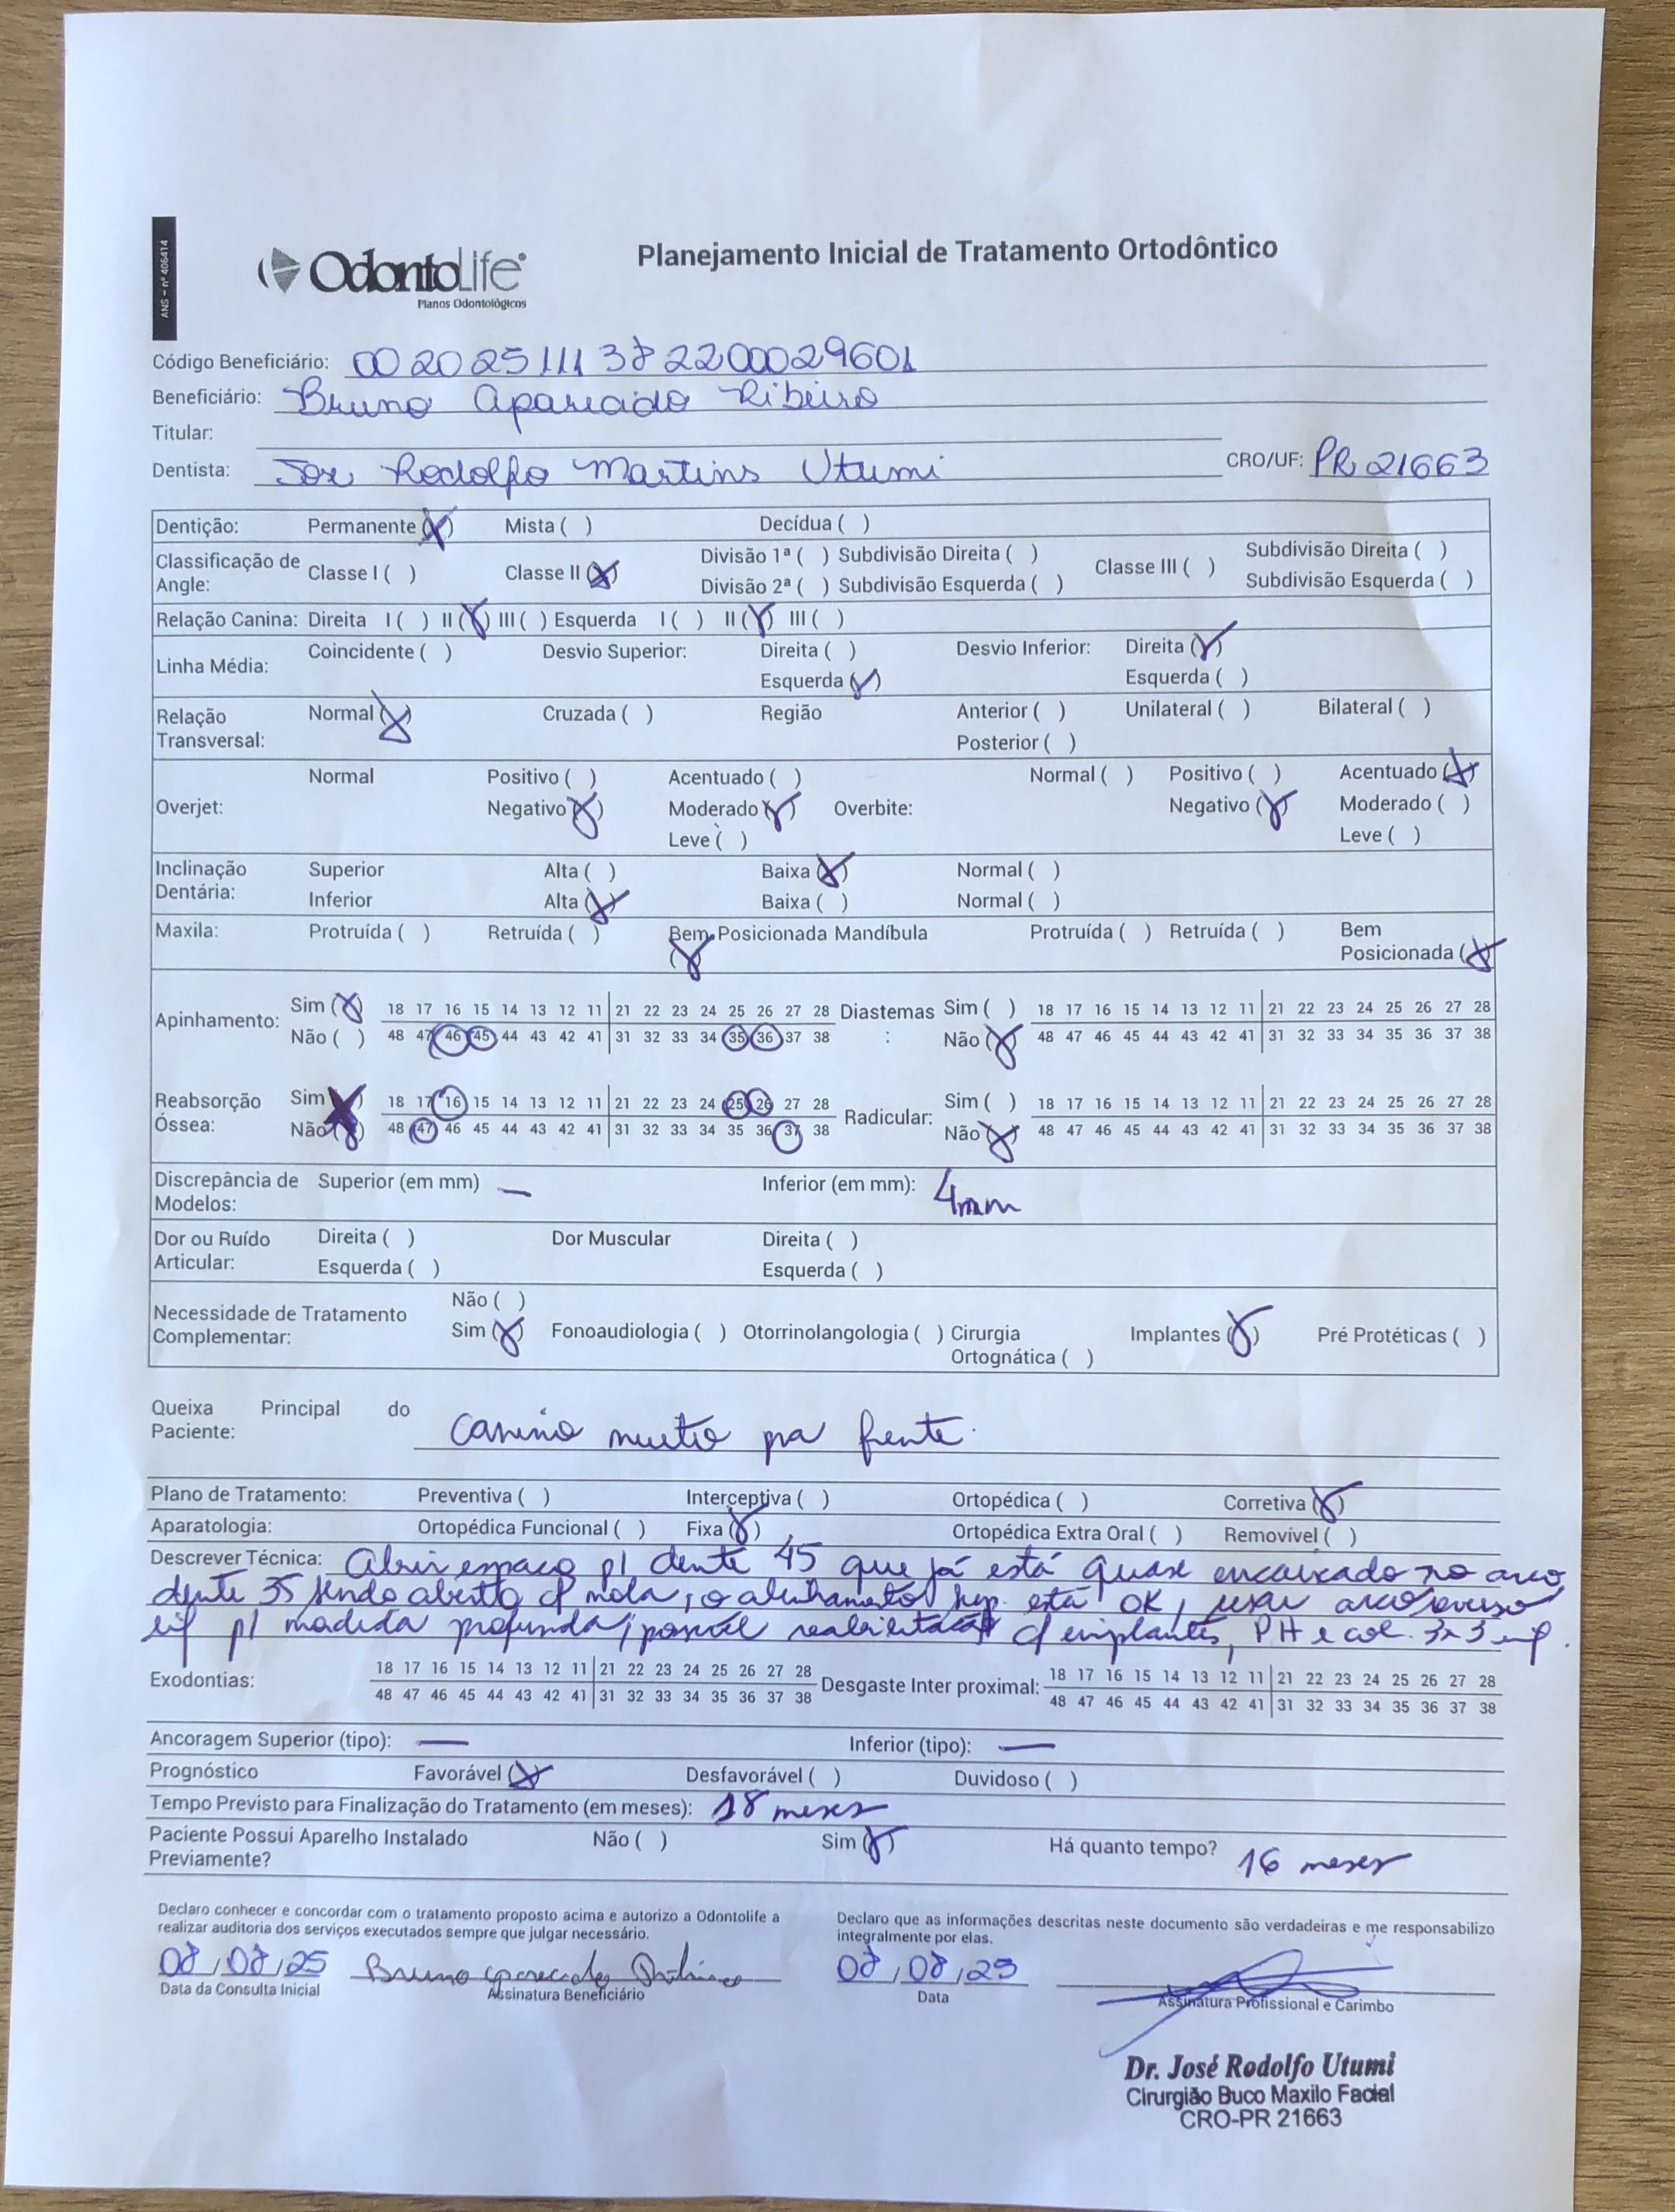 ANS - nº 406414
OdontoLife
Planos Odontológicos
Planejamento Inicial de Tratamento Ortodôntico
Código Beneficiário: 002025111382200029601
Beneficiário: Bruno Aparecido Ribeiro
Titular:
Dentista: Jose Rodolfo Martins Utumi CRO/UF: PR 21663
Dentição: Permanente (X) Mista ( ) Decídua ( )
Classificação de Angle: Classe I ( ) Classe II (X) Divisão 1ª ( ) Subdivisão Direita ( ) Classe III ( ) Subdivisão Direita ( )
Divisão 2ª ( ) Subdivisão Esquerda ( ) Subdivisão Esquerda ( )
Relação Canina: Direita I ( ) II (X) III ( ) Esquerda I ( ) II (X) III ( )
Linha Média: Coincidente ( ) Desvio Superior: Direita ( ) Desvio Inferior: Direita (X)
Esquerda (X) Esquerda ( )
Relação Transversal: Normal (X) Cruzada ( ) Região Anterior ( ) Unilateral ( ) Bilateral ( )
Posterior ( )
Normal Positivo ( ) Acentuado ( ) Normal ( ) Positivo ( ) Acentuado (X)
Overjet: Negativo (X) Moderado (X) Overbite: Negativo (X) Moderado ( )
Leve ( ) Leve ( )
Inclinação Dentária: Superior Alta ( ) Baixa (X) Normal ( )
Inferior Alta (X) Baixa ( ) Normal ( )
Maxila: Protruída ( ) Retruída ( ) Bem Posicionada (X) Mandíbula Protruída ( ) Retruída ( ) Bem Posicionada (X)
Apinhamento: Sim (X) 18 17 16 15 14 13 12 11 21 22 23 24 25 26 27 28 Diastemas : Sim ( ) 18 17 16 15 14 13 12 11 21 22 23 24 25 26 27 28
Não ( ) 48 47 46 45 44 43 42 41 31 32 33 34 35 36 37 38 Não (X) 48 47 46 45 44 43 42 41 31 32 33 34 35 36 37 38
Reabsorção Óssea: Sim (X) 18 17 16 15 14 13 12 11 21 22 23 24 25 26 27 28 Radicular: Sim ( ) 18 17 16 15 14 13 12 11 21 22 23 24 25 26 27 28
Não (X) 48 47 46 45 44 43 42 41 31 32 33 34 35 36 37 38 Não (X) 48 47 46 45 44 43 42 41 31 32 33 34 35 36 37 38
Discrepância de Modelos: Superior (em mm) — Inferior (em mm): 4mm
Dor ou Ruído Articular: Direita ( ) Dor Muscular Direita ( )
Esquerda ( ) Esquerda ( )
Necessidade de Tratamento Complementar: Não ( )
Sim (X) Fonoaudiologia ( ) Otorrinolangologia ( ) Cirurgia Ortognática ( ) Implantes (X) Pré Protéticas ( )
Queixa Principal do Paciente: Canino muito pra frente.
Plano de Tratamento: Preventiva ( ) Interceptiva ( ) Ortopédica ( ) Corretiva (X)
Aparatologia: Ortopédica Funcional ( ) Fixa (X) Ortopédica Extra Oral ( ) Removível ( )
Descrever Técnica: Abrir espaço p/ dente 45 que já está quase encaixado no arco
dente 35 sendo aberto c/ mola, o alinhamento sup. está OK, usar arco reverso
inf p/ mordida profunda, possível reabilitação c/ implantes, PH e col. 3x3 inf.
Exodontias: 18 17 16 15 14 13 12 11 21 22 23 24 25 26 27 28 Desgaste Inter proximal: 18 17 16 15 14 13 12 11 21 22 23 24 25 26 27 28
48 47 46 45 44 43 42 41 31 32 33 34 35 36 37 38 48 47 46 45 44 43 42 41 31 32 33 34 35 36 37 38
Ancoragem Superior (tipo): — Inferior (tipo): —
Prognóstico Favorável (X) Desfavorável ( ) Duvidoso ( )
Tempo Previsto para Finalização do Tratamento (em meses): 18 meses
Paciente Possui Aparelho Instalado Previamente? Não ( ) Sim (X) Há quanto tempo? 16 meses
Declaro conhecer e concordar com o tratamento proposto acima e autorizo a Odontolife a
realizar auditoria dos serviços executados sempre que julgar necessário.
Declaro que as informações descritas neste documento são verdadeiras e me responsabilizo
integralmente por elas.
08/08/25 Bruno Aparecido Ribeiro 08/08/25
Data da Consulta Inicial Assinatura Beneficiário Data Assinatura Profissional e Carimbo
Dr. José Rodolfo Utumi
Cirurgião Buco Maxilo Facial
CRO-PR 21663